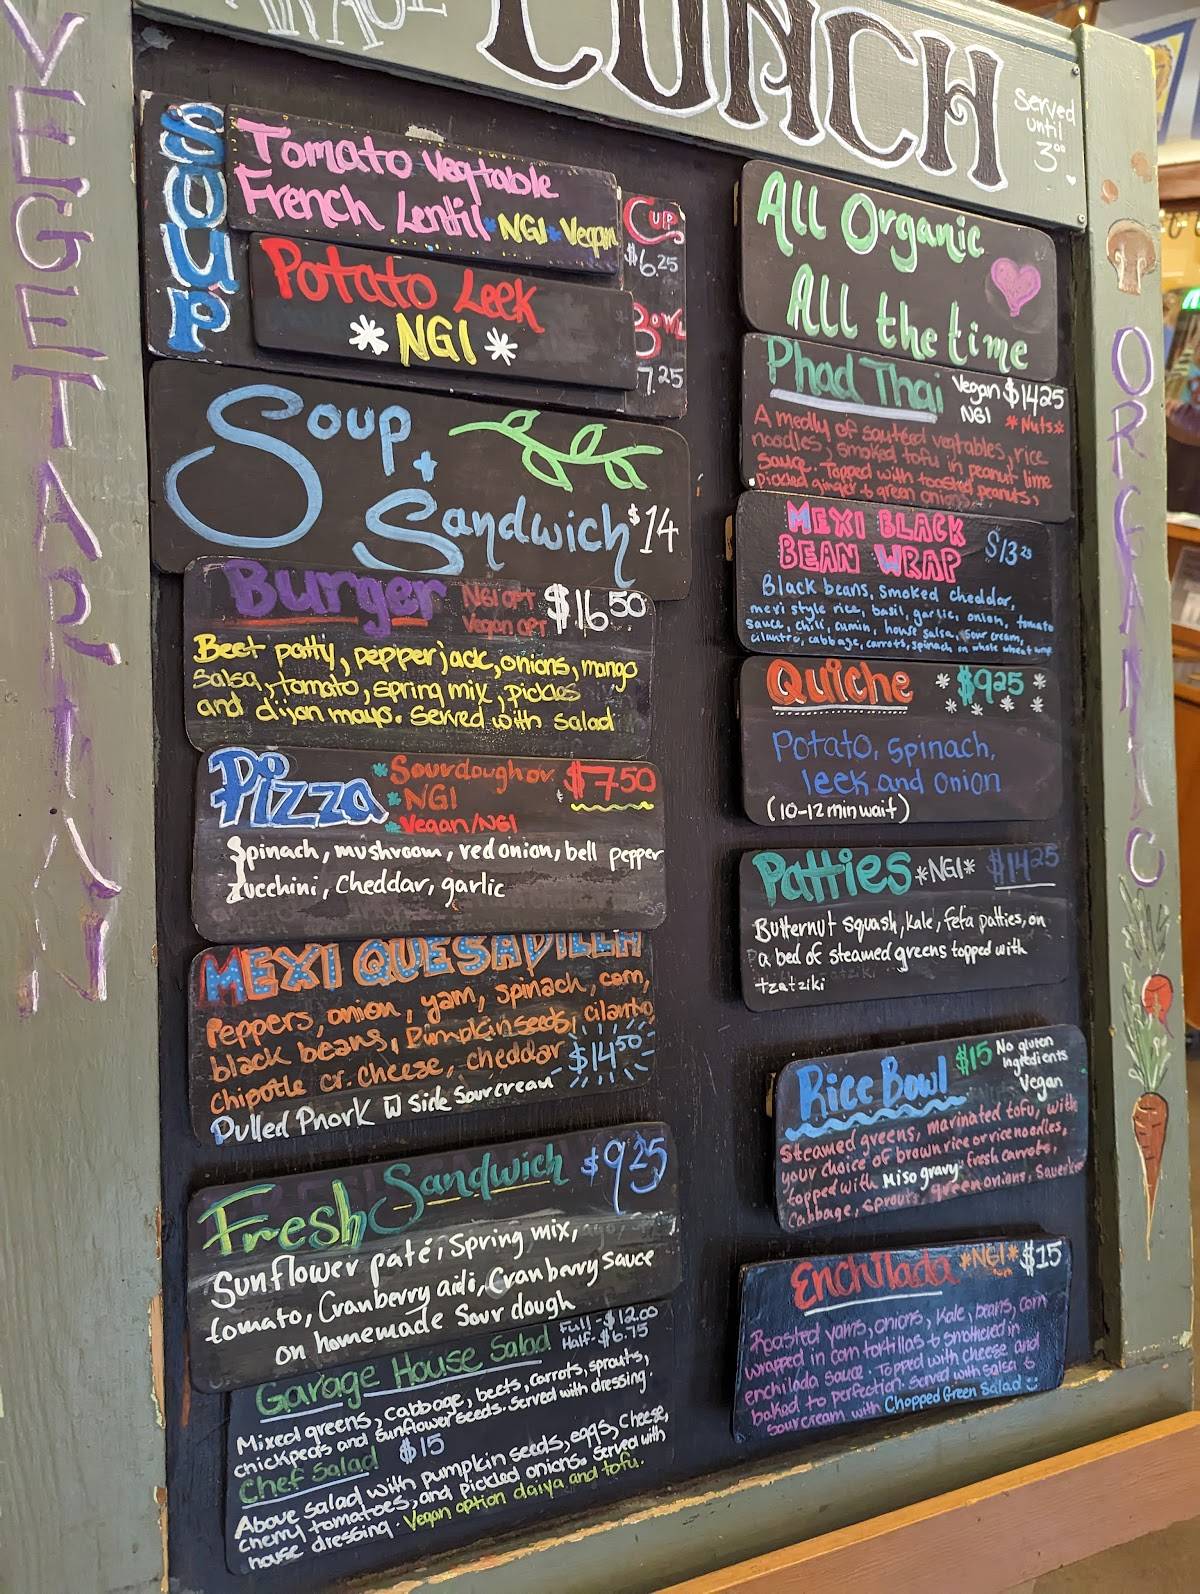 LUNCH
served
until
3⁰⁰
VEGETARIAN
SOUP
Tomato Vegtable
French Lentil *NGI*Vegan
Potato Leek
*NGI*
CUP
$6.25
BOWL
7.25
Soup +
Sandwich $14
Burger NGI OPT $16.50
Vegan OPT
Beet patty, pepperjack, onions, mango
salsa, tomato, spring mix, pickles
and dijon mayo. Served with salad
Pizza *Sourdough or $7.50
*NGI
*Vegan/NGI
Spinach, mushroom, red onion, bell pepper
zucchini, cheddar, garlic
MEXI QUESADILLA
Peppers, onion, yam, spinach, corn,
black beans, Pumpkin seeds, cilantro
chipotle cr. cheese, cheddar $14.50
Pulled Phork w side sour cream
Fresh Sandwich $9.25
Sunflower paté, Spring mix,
tomato, Cranberry aidi, Cranberry sauce
on homemade Sour dough
Garage House Salad Full - $12.00
Half - $6.75
Mixed greens, cabbage, beets, carrots, sprouts,
chickpeas and sunflower seeds. Served with dressing.
Chef Salad $15
Above salad with pumpkin seeds, eggs, cheese,
cherry tomatoes, and pickled onions. Served with
house dressing. Vegan option daiya and tofu.
All Organic
All the time
Phad Thai Vegan $14.25
NGI *Nuts*
A medly of sautéed vegtables, rice
noodles, smoked tofu in peanut lime
sauce. Topped with toasted peanuts,
pickled ginger & green onions.
MEXI BLACK
BEAN WRAP $13.25
Black beans, smoked cheddar,
mexi style rice, basil, garlic, onion, tomato
sauce, chili, cumin, house salsa, sour cream,
cilantro, cabbage, carrots, spinach on whole wheat wrap
Quiche *$9.25*
Potato, spinach,
leek and onion
(10-12 min wait)
Patties *NGI* $14.25
Butternut squash, kale, feta patties, on
a bed of steamed greens topped with
tzatziki
Rice Bowl $15 No gluten
ingredients
Vegan
Steamed greens, marinated tofu, with
your choice of brown rice or rice noodles,
topped with Miso gravy, fresh carrots,
Cabbage, sprouts, green onions, Sauerkraut
Enchilada *NGI* $15
Roasted yams, onions, kale, beans, corn
wrapped in corn tortillas & smothered in
enchilada sauce. Topped with cheese and
baked to perfection. Served with salsa &
sour cream with Chopped Green Salad
ORGANIC